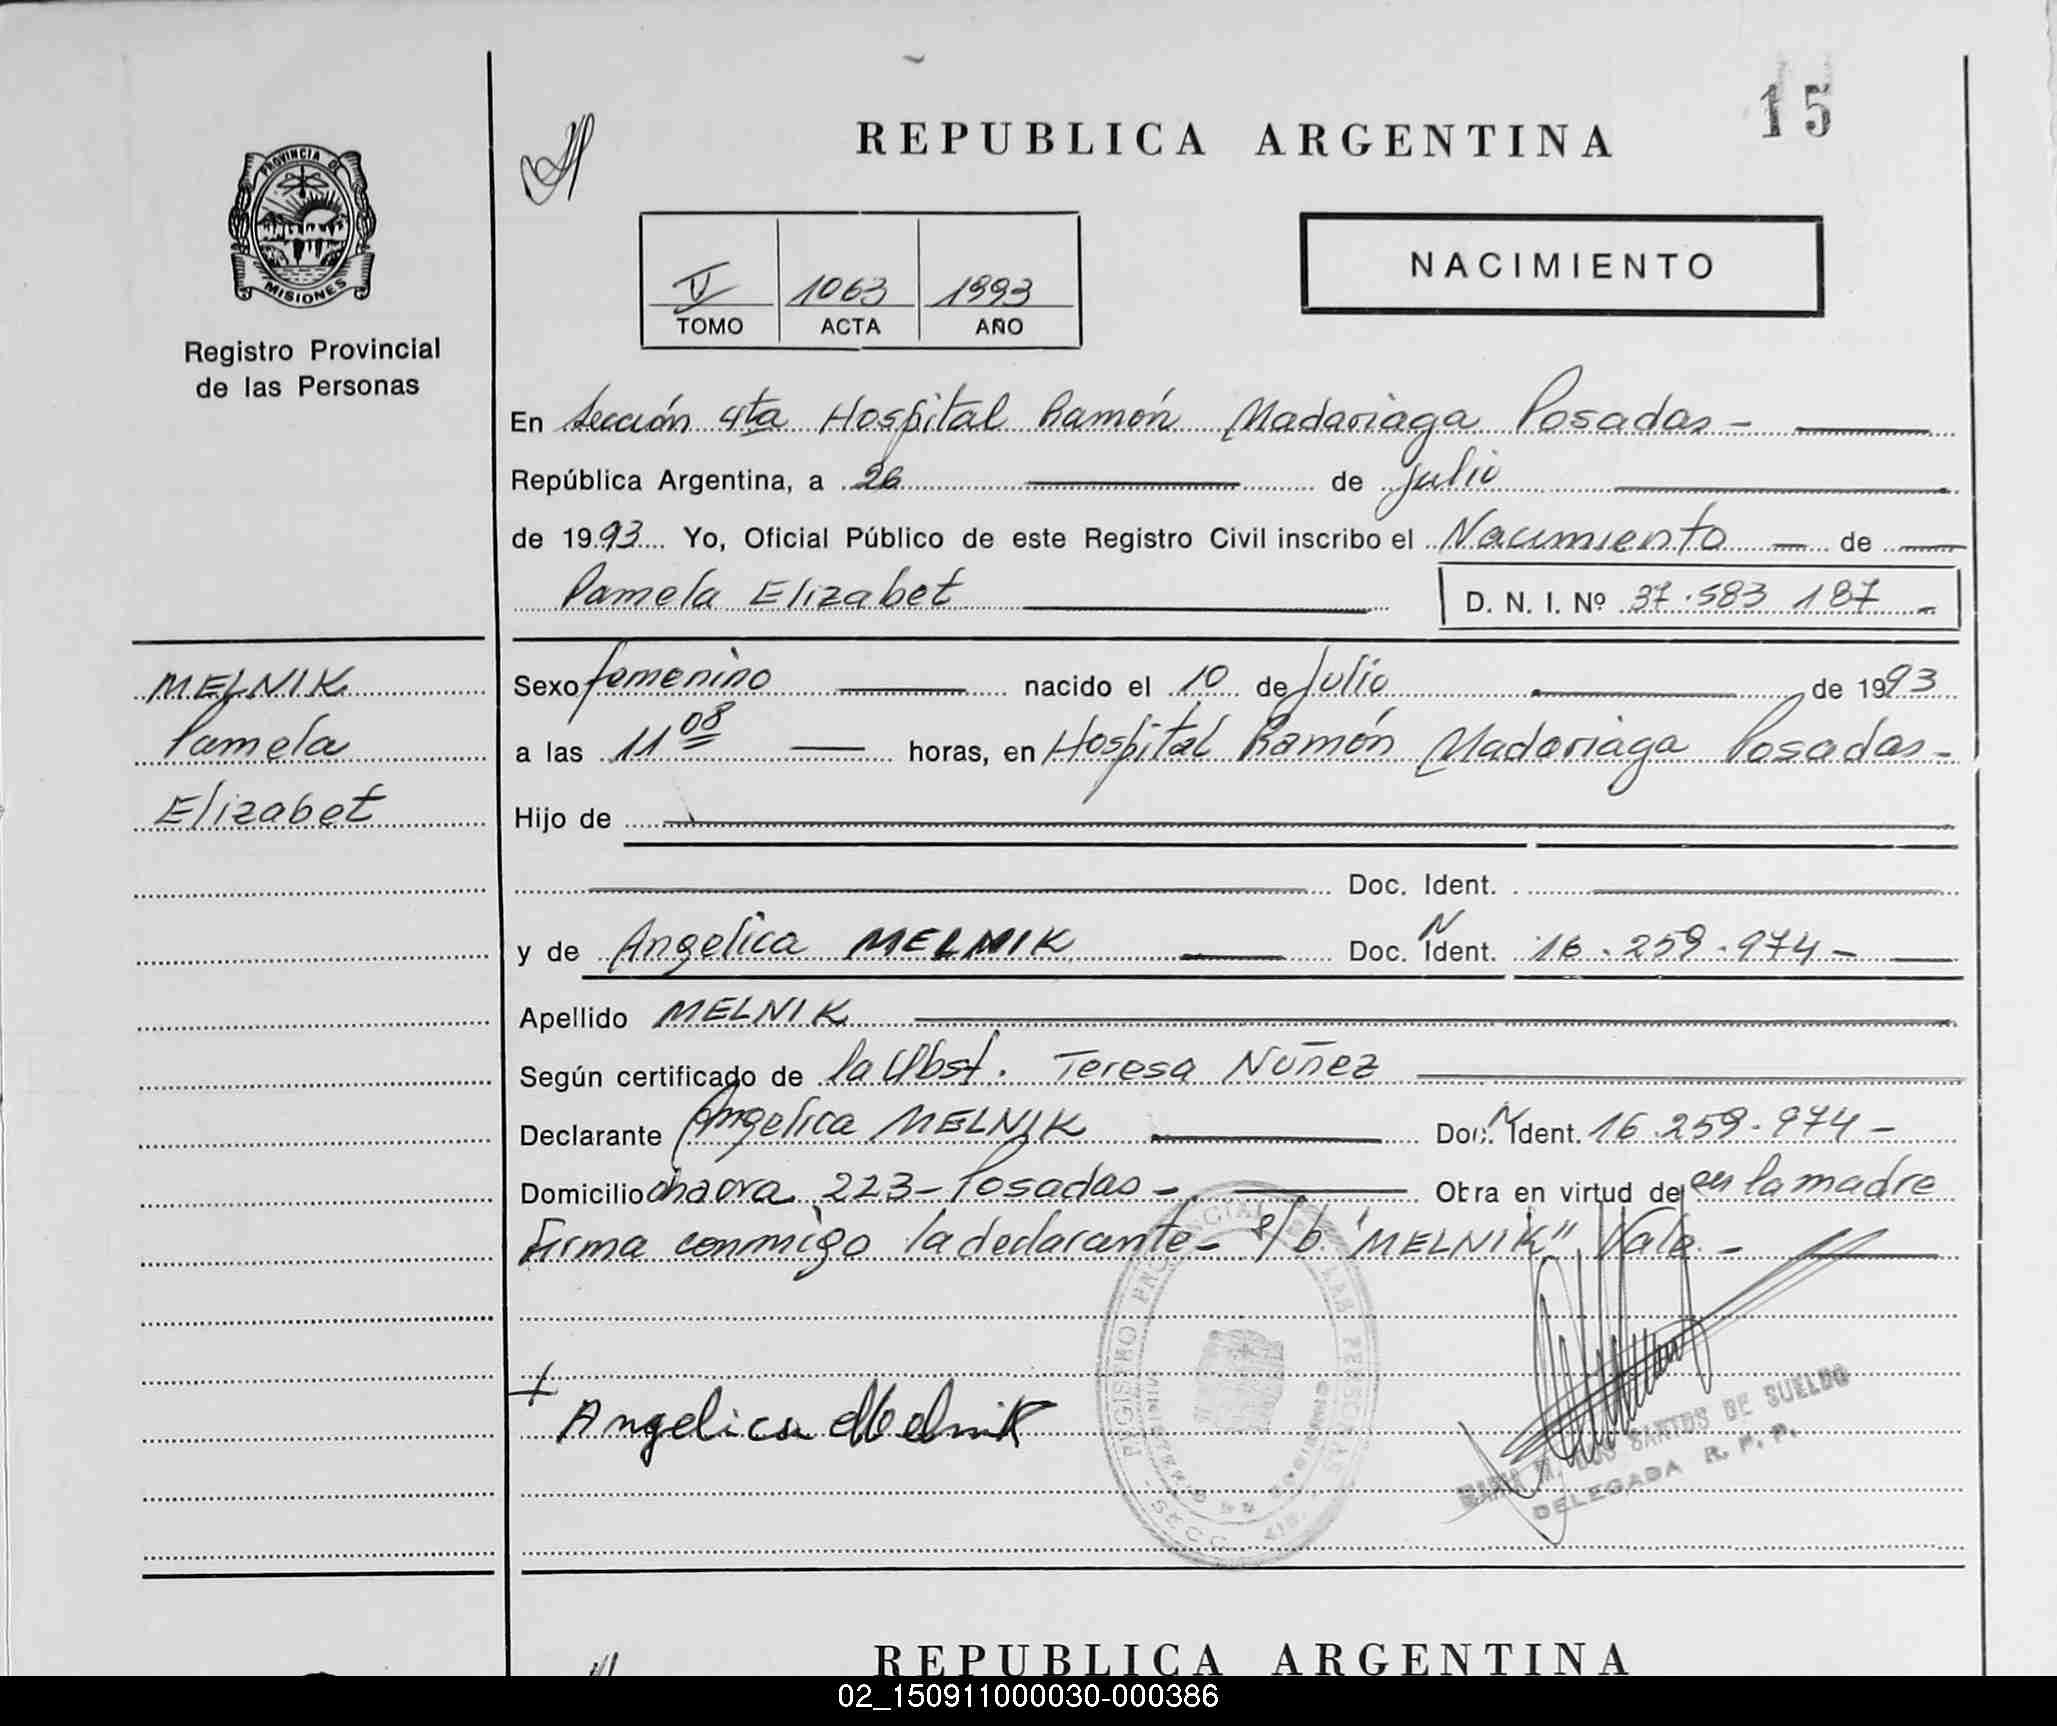 15
REPUBLICA ARGENTINA
PROVINCIA DE
MISIONES
Registro Provincial
de las Personas
1063 1993
TOMO ACTA AÑO
NACIMIENTO
En Sección 4ta Hospital Ramón Madariaga Posadas -
República Argentina, a 26 de Julio
de 1993 Yo, Oficial Público de este Registro Civil inscribo el Nacimiento de
Pamela Elizabet D. N. I. Nº 37.583 187 -
MELNIK
Pamela
Elizabet
Sexo femenino nacido el 10 de Julio de 1993
a las 11 08 horas, en Hospital Ramón Madariaga Posadas -
Hijo de
Doc. Ident.
y de Angelica MELNIK Doc. N Ident. 16.259.974 -
Apellido MELNIK
Según certificado de la Obst. Teresa Nuñez
Declarante Angelica MELNIK Doc. N Ident. 16.259.974 -
Domicilio chacra 223 - Posadas - Otra en virtud de ser la madre
Firma conmigo la declarante - s/b "MELNIK" Vale -
Angelica Melnik
REGISTRO PROVINCIAL DE LAS PERSONAS
SANTOS DE SUELDO
DELEGADA R. P. P.
REPUBLICA ARGENTINA
02_150911000030-000386